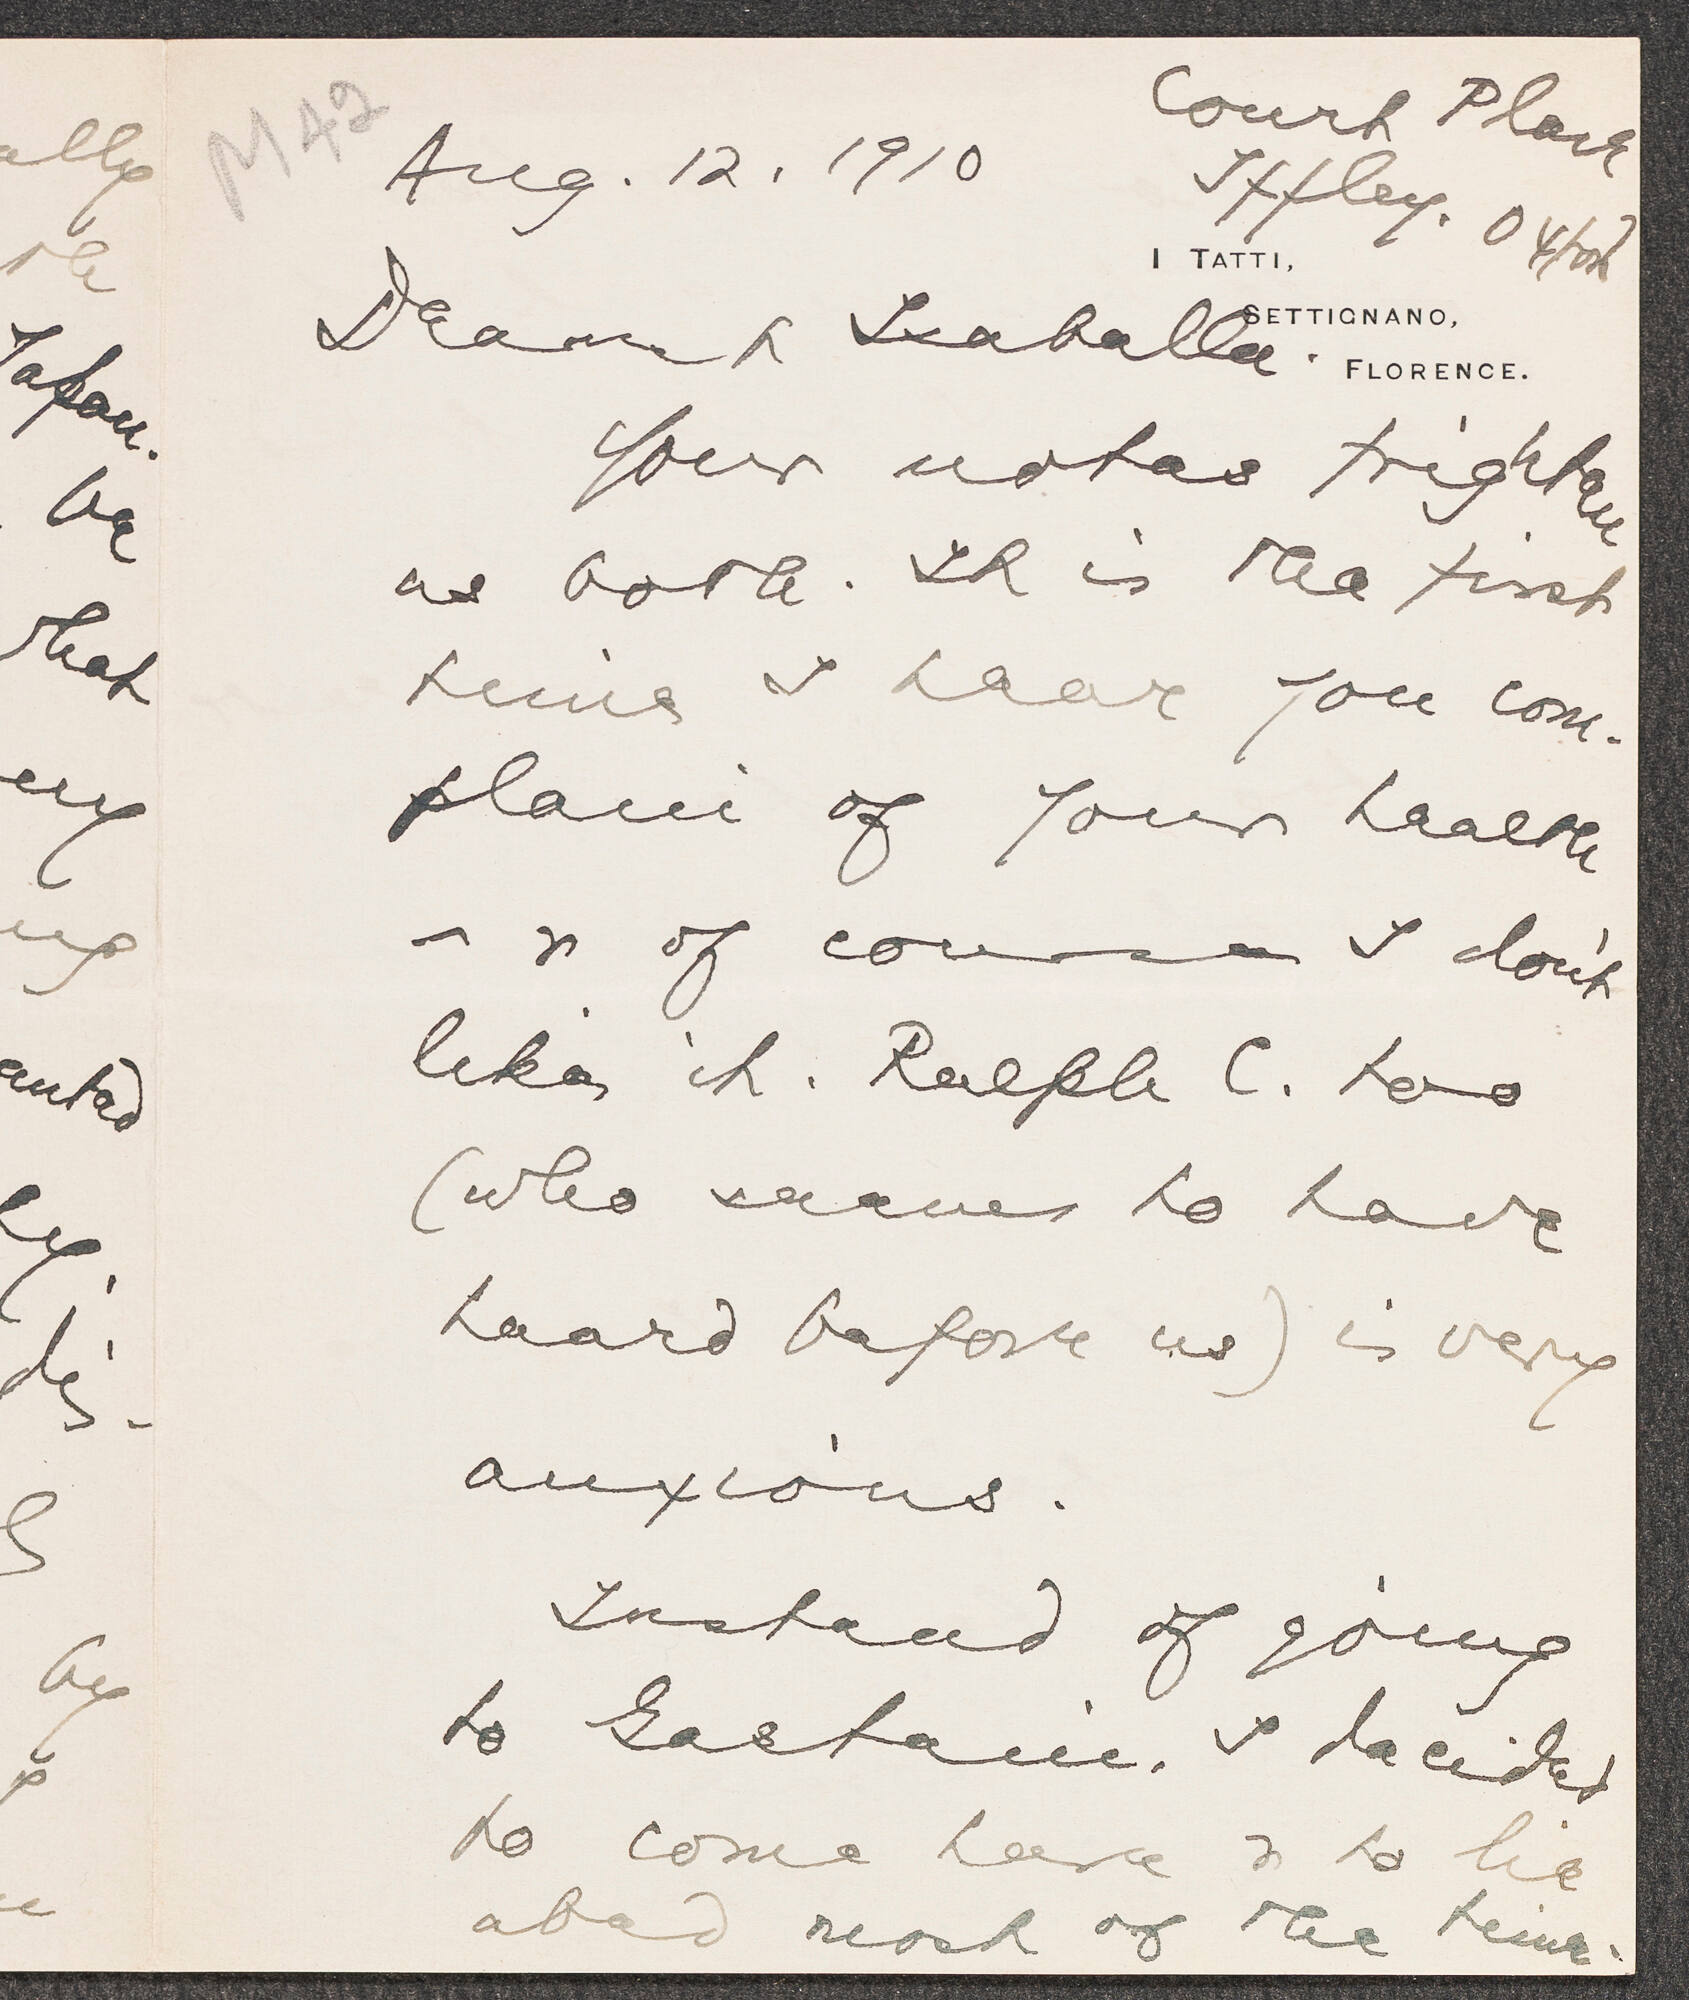 ally
the
Japan.
be
that
ey
up
anted
ly.
dis-
by
M42
Court Place
Iffley. Oxford
Aug. 12, 1910
I TATTI,
SETTIGNANO,
FLORENCE.
Dearest Isabella.
Your notes frighten
us both. It is the first
time I hear you com-
plain of your health
- & of course I don't
like it. Ralph C. too
(who seems to have
heard before us) is very
anxious.
Instead of going
to Gastein, I decided
to come here & to lie
abed most of the time.